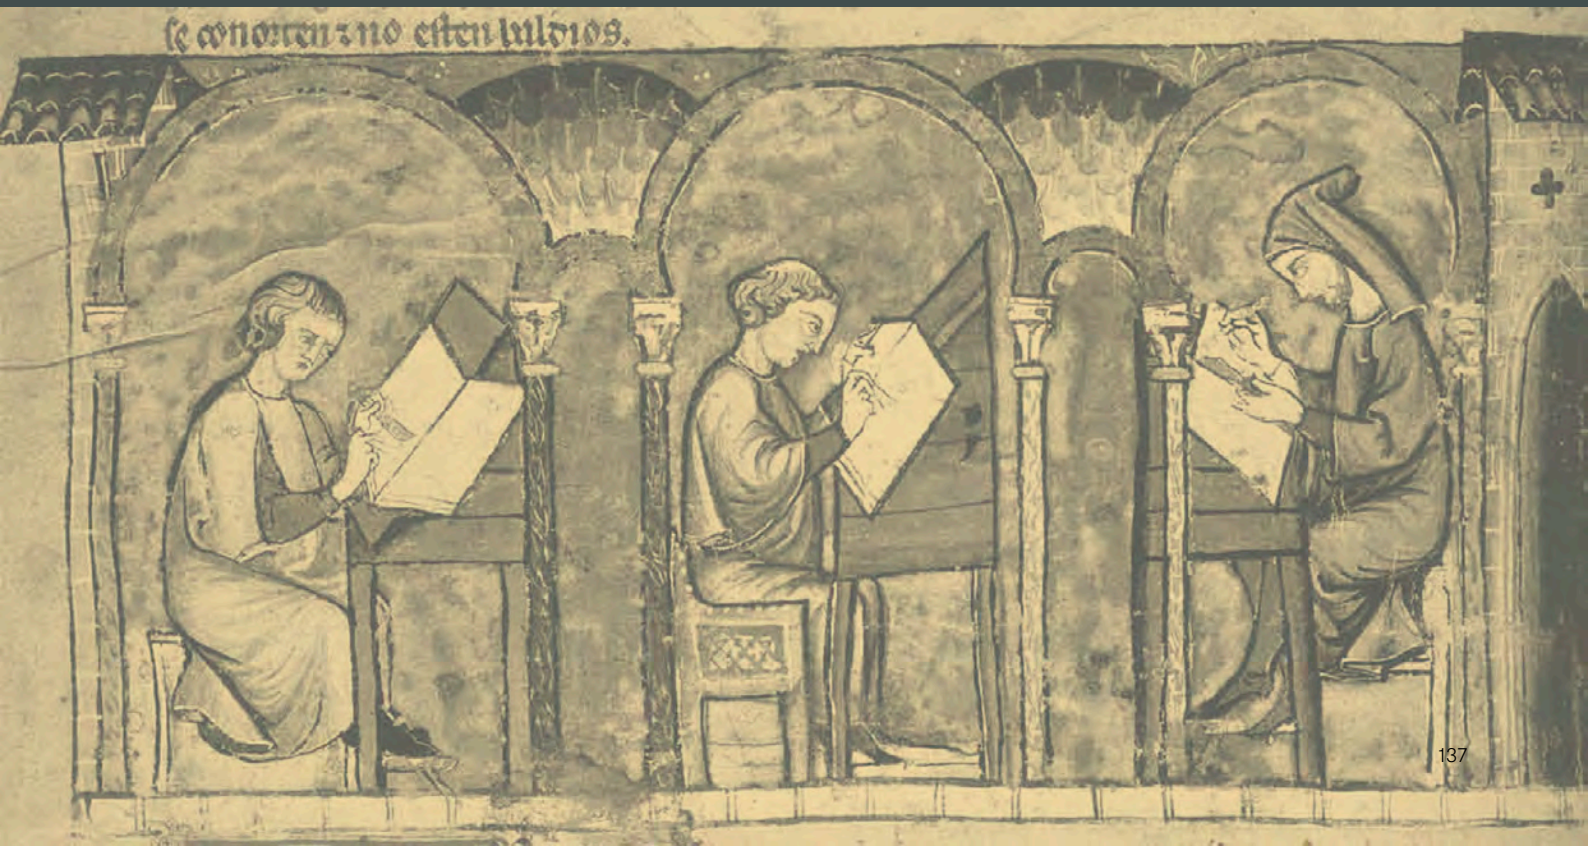 se conorten ⁊ no esten baldios.
137